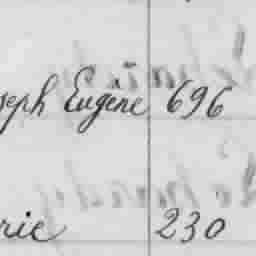 seph Eugène 696
rie 230